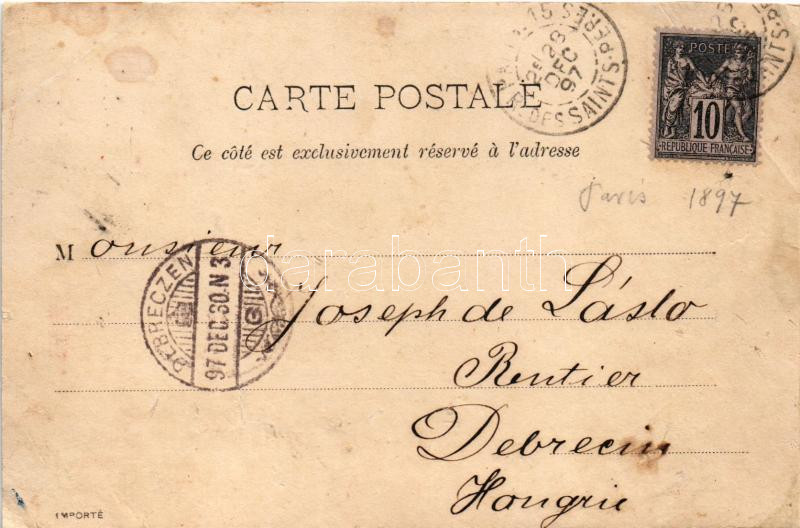 PARIS 15
R. DES SAINTS-PÈRES
28
DEC
97
POSTE
10
RÉPUBLIQUE FRANÇAISE
CARTE POSTALE
Ce côté est exclusivement réservé à l'adresse
Paris 1897
Monsieur
darabanth
DEBRECZEN
97 DEC. 30. N 3
Joseph de László
Rentier
Debrecin
Hongrie
IMPORTÉ